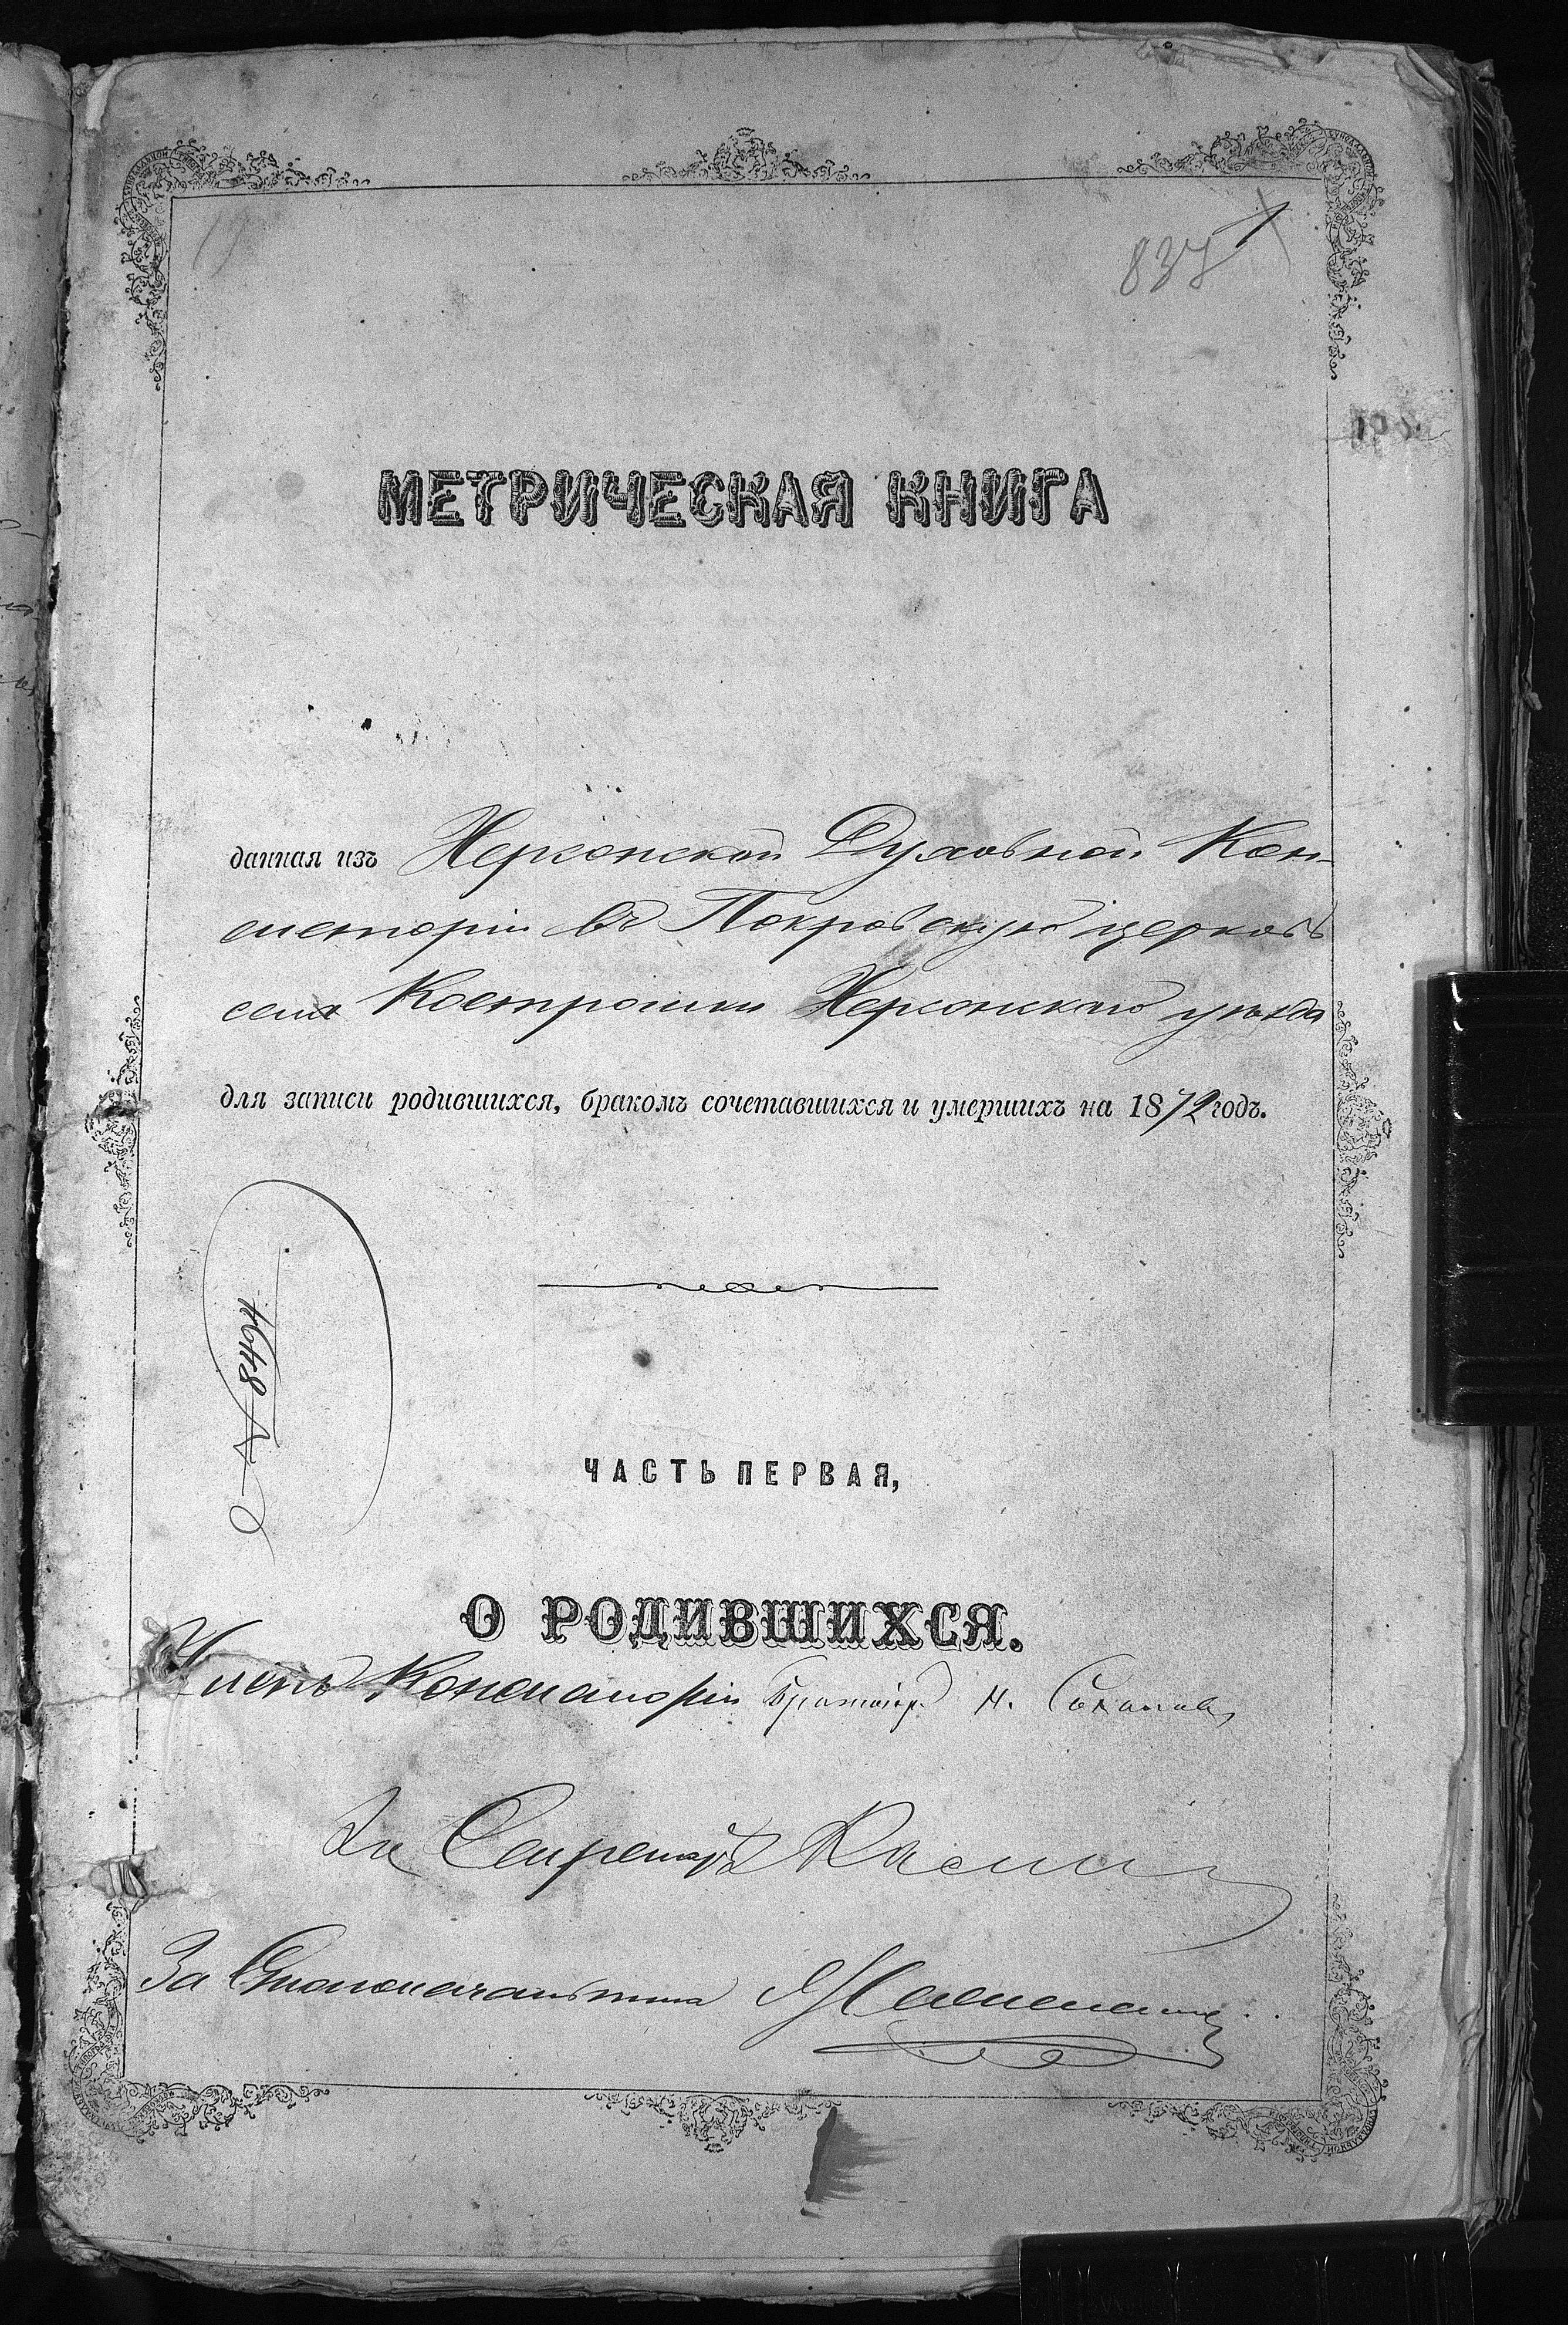 837
1
МЕТРИЧЕСКАЯ КНИГА
данная изъ Херсонской Духовной Кон-
систоріи въ Покровскую церковь
села Костромки Херсонскаго уѣзда
для записи родившихся, бракомъ сочетавшихся и умершихъ на 1872 годъ.
4648
ЧАСТЬ ПЕРВАЯ,
О РОДИВШИХСЯ.
Членъ Консисторіи Н.
За Секретаря
За Столоначальника